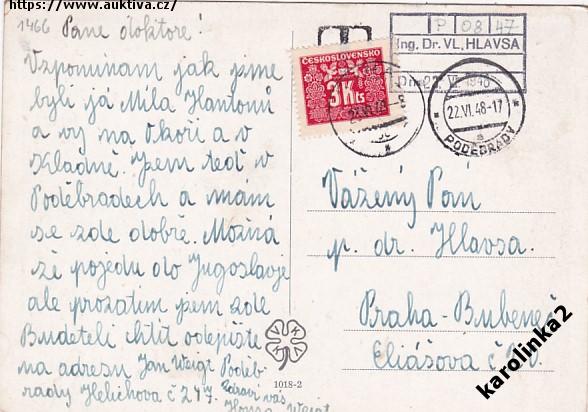 https://www.auktiva.cz/
1466 Pane doktore!
Vzpomínám jak jsme
byli já Míla Hantonů
a vy na Okoři a v
Kladně. Jsem teď v
Poděbradech a mám
se zde dobře. Možná
že pojedu do Jugoslavje
ale prozatim jsem zde
Budeteli chtít odepište
na adresu Jan Weigt Poděb-
rady Helichova č 247. Zdraví vás
Honza Weigt
T
ČESKOSLOVENSKO
3 Kčs
P 08 47
Ing. Dr. VL. HLAVSA
Dne 22. VI. 1948
22. VI. 48-17
PODĚBRADY
a
Vážený Pan
p. dr. Hlavsa.
Praha-Bubeneč
Eliášova č
V-K-A
1018-2
karolinka2